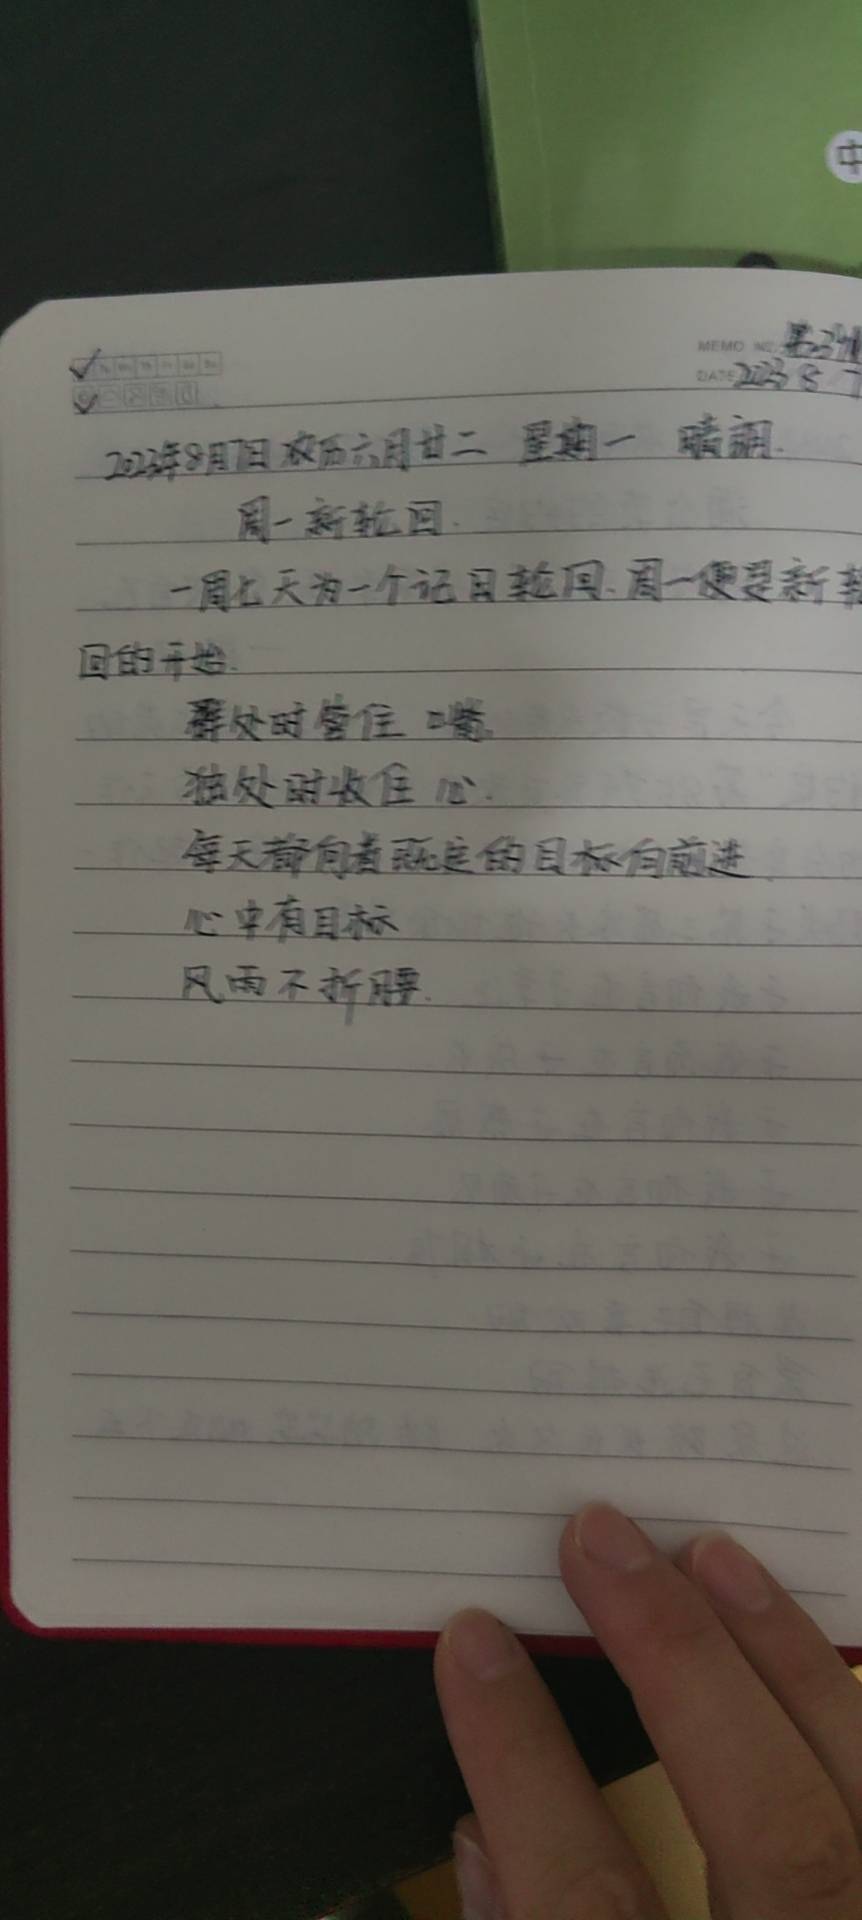 中
MEMO NO.
DATE 2023 8 7
2023年8月7日 农历六月廿二 星期一 晴朗.
周一新轮回.
一周七天为一个记日轮回.周一便是新轮
回的开始.
群处时管住口嘴.
独处时收住心.
每天都向着既定的目标向前进
心中有目标
风雨不折腰.